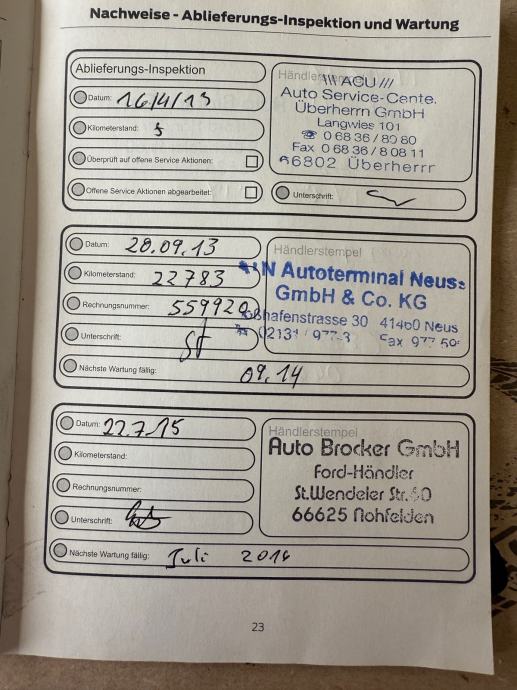 Nachweise - Ablieferungs-Inspektion und Wartung
Ablieferungs-Inspektion
Datum: 16/4/13
Kilometerstand: 5
Überprüft auf offene Service Aktionen:
Offene Service Aktionen abgearbeitet:
\\\ ACU ///
Auto Service-Cente.
Überherrn GmbH
Langwies 101
☎ 0 68 36 / 80 80
Fax 0 68 36 / 8 08 11
66802 Überherrr
Unterschrift:
Datum: 20.09.13
Kilometerstand: 22783
Rechnungsnummer: 559920
Unterschrift:
Nächste Wartung fällig: 09.14
Händlerstempel
Autoterminal Neus
GmbH & Co. KG
hafenstrasse 30 41460 Neus
02131 / 977-3 Fax 977 50
Datum: 22.7.15
Kilometerstand:
Rechnungsnummer:
Unterschrift:
Nächste Wartung fällig: Juli 2016
Händlerstempel
Auto Brocker GmbH
Ford-Händler
St.Wendeler Str.
66625 Nohfelden
23